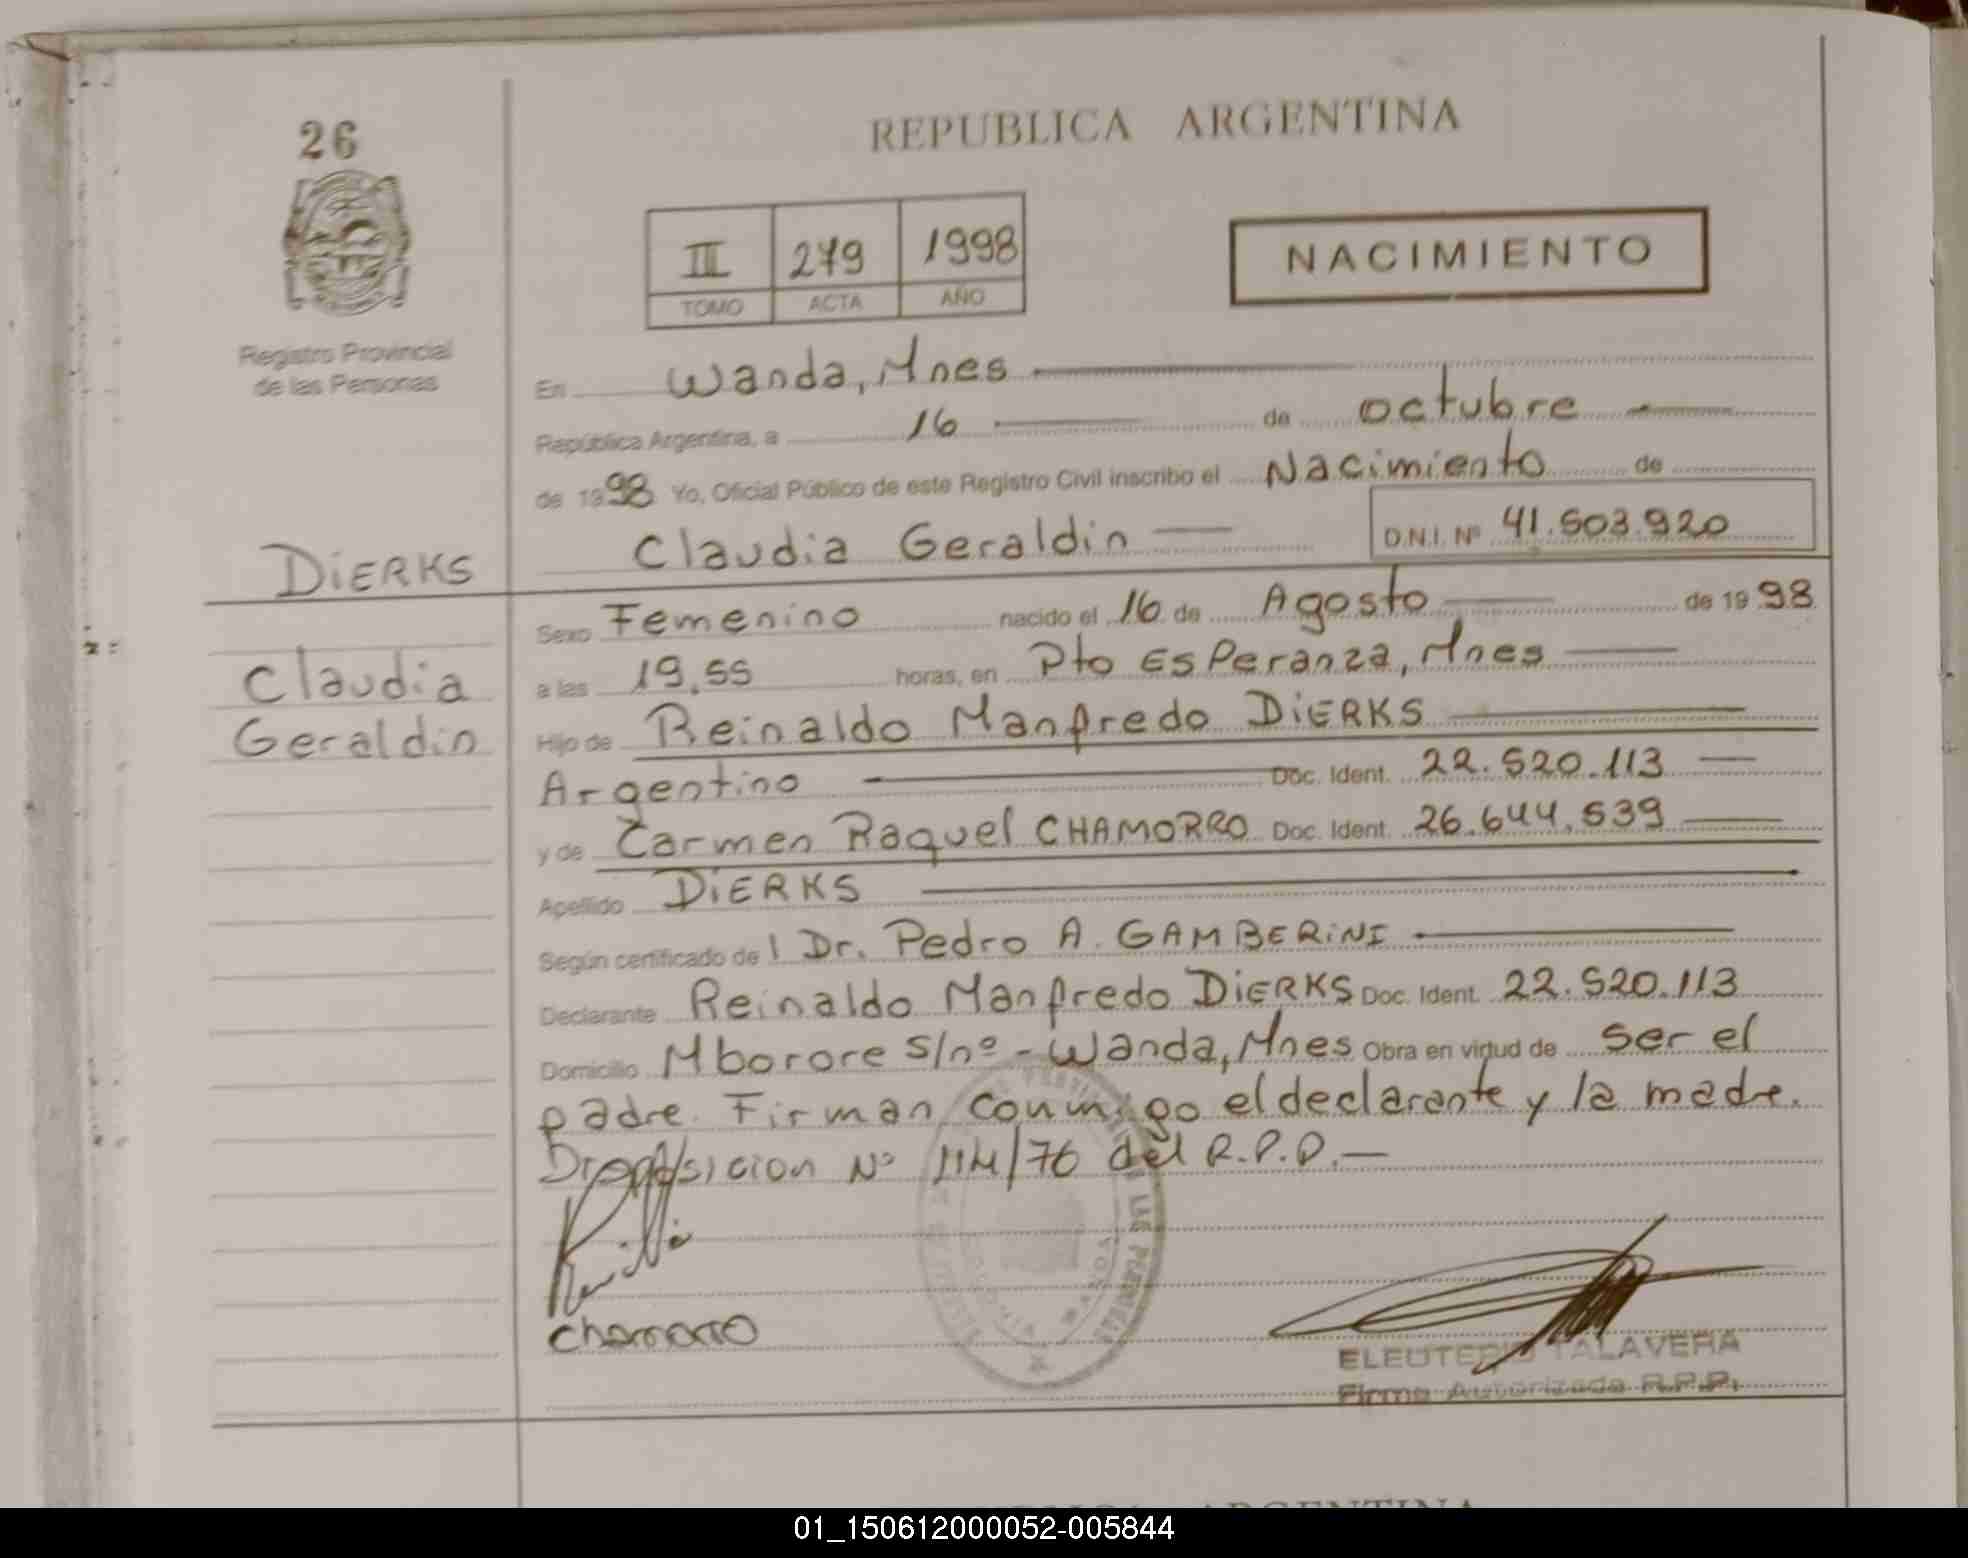 26
REPUBLICA ARGENTINA
II 279 1998
TOMO ACTA AÑO
NACIMIENTO
Registro Provincial
de las Personas
En Wanda, Mnes
República Argentina, a 16 de octubre
de 1998 Yo, Oficial Público de este Registro Civil inscribo el Nacimiento de
Claudia Geraldin D.N.I. Nº 41.503.920
DiERKS
Claudia
Geraldin
Sexo Femenino nacido el 16 de Agosto de 1998
a las 19,55 horas, en Pto EsPeranza, Mnes
Hijo de Reinaldo Manfredo DiERKS
Argentino Doc. Ident. 22.520.113
y de Carmen Raquel CHAMORRO Doc. Ident. 26.644.539
Apellido DiERKS
Según certificado del Dr. Pedro A. GAMBERiNI
Declarante Reinaldo Manfredo DiERKS Doc. Ident. 22.520.113
Domicilio Mborore S/nº - Wanda, Mnes Obra en virtud de ser el
padre. Firman conmigo el declarante y la madre.
Nº 114/76 del R.P.P.
Chamorro
ELEUTERIO TALAVERA
Firma Autorizada R.P.P.
REPUBLICA ARGENTINA
01_150612000052-005844